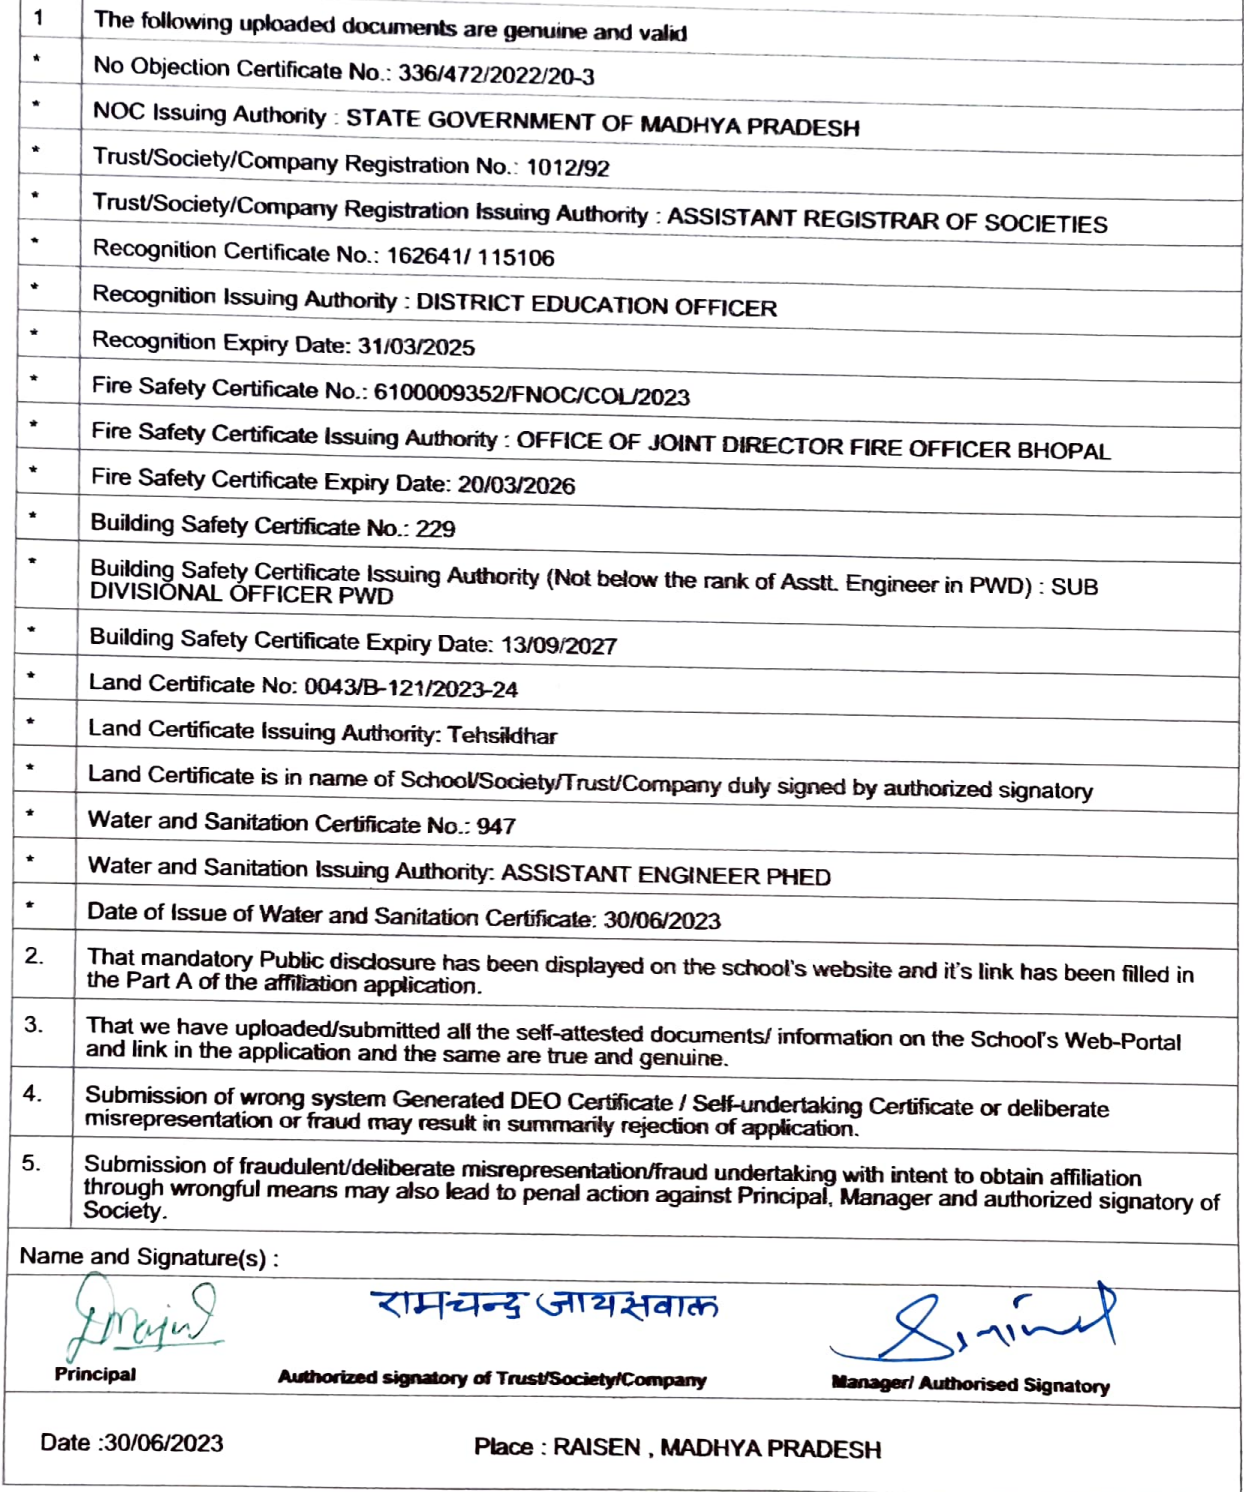 1 The following uploaded documents are genuine and valid
* No Objection Certificate No.: 336/472/2022/20-3
* NOC Issuing Authority : STATE GOVERNMENT OF MADHYA PRADESH
* Trust/Society/Company Registration No.: 1012/92
* Trust/Society/Company Registration Issuing Authority : ASSISTANT REGISTRAR OF SOCIETIES
* Recognition Certificate No.: 162641/ 115106
* Recognition Issuing Authority : DISTRICT EDUCATION OFFICER
* Recognition Expiry Date: 31/03/2025
* Fire Safety Certificate No.: 6100009352/FNOC/COL/2023
* Fire Safety Certificate Issuing Authority : OFFICE OF JOINT DIRECTOR FIRE OFFICER BHOPAL
* Fire Safety Certificate Expiry Date: 20/03/2026
* Building Safety Certificate No.: 229
* Building Safety Certificate Issuing Authority (Not below the rank of Asstt. Engineer in PWD) : SUB
DIVISIONAL OFFICER PWD
* Building Safety Certificate Expiry Date: 13/09/2027
* Land Certificate No: 0043/B-121/2023-24
* Land Certificate Issuing Authority: Tehsildhar
* Land Certificate is in name of School/Society/Trust/Company duly signed by authorized signatory
* Water and Sanitation Certificate No.: 947
* Water and Sanitation Issuing Authority: ASSISTANT ENGINEER PHED
* Date of Issue of Water and Sanitation Certificate: 30/06/2023
2. That mandatory Public disclosure has been displayed on the school's website and it's link has been filled in
the Part A of the affiliation application.
3. That we have uploaded/submitted all the self-attested documents/ information on the School's Web-Portal
and link in the application and the same are true and genuine.
4. Submission of wrong system Generated DEO Certificate / Self-undertaking Certificate or deliberate
misrepresentation or fraud may result in summarily rejection of application.
5. Submission of fraudulent/deliberate misrepresentation/fraud undertaking with intent to obtain affiliation
through wrongful means may also lead to penal action against Principal, Manager and authorized signatory of
Society.
Name and Signature(s) :
रामचन्द्र जायसवाल
Principal Authorized signatory of Trust/Society/Company Manager/ Authorised Signatory
Date :30/06/2023 Place : RAISEN , MADHYA PRADESH